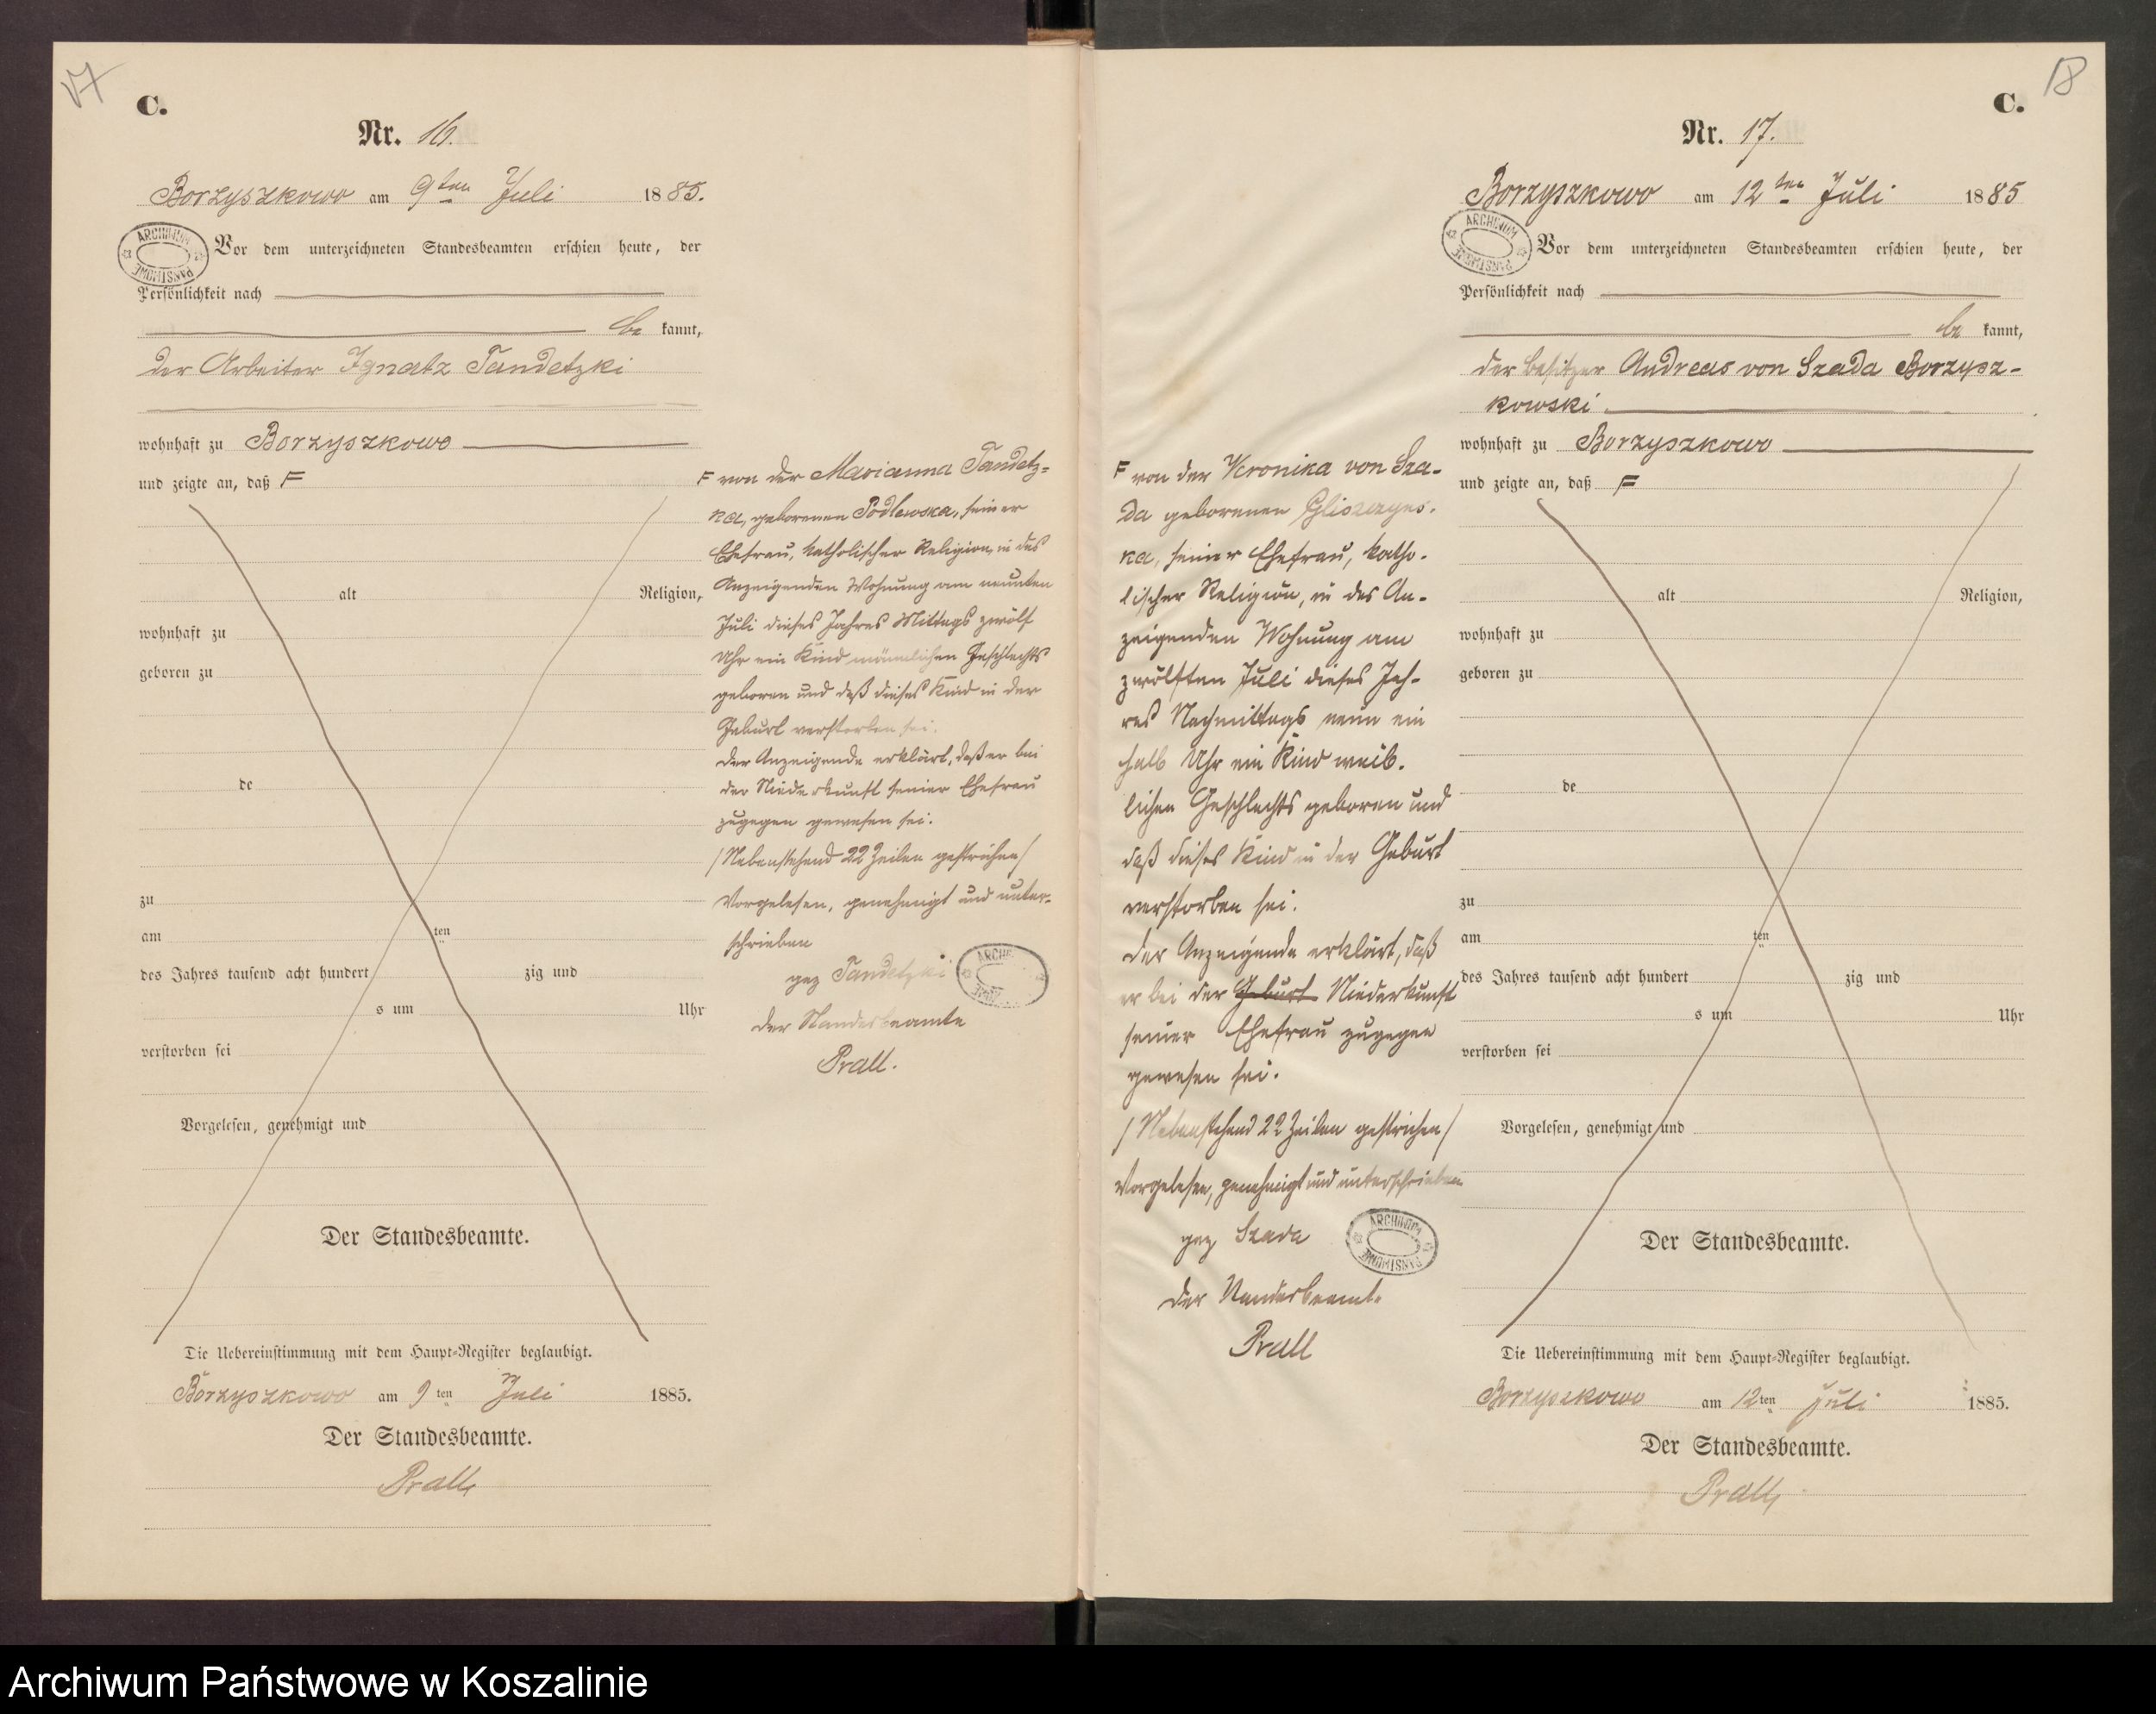 17
C.
Nr. 16.
Borzyszkowo am 9ten Juli 1885.
ARCHIWUM PAŃSTWOWE
Vor dem unterzeichneten Standesbeamten erschien heute, der
Persönlichkeit nach
be kannt,
der Arbeiter Ignatz Tandetzki
wohnhaft zu Borzyszkowo
und zeigte an, daß F
alt Religion,
wohnhaft zu
geboren zu
de
zu
am ten
des Jahres tausend acht hundert zig und
s um Uhr
verstorben sei
Vorgelesen, genehmigt und
Der Standesbeamte.
Die Uebereinstimmung mit dem Haupt-Register beglaubigt.
Borzyszkowo am 9ten Juli 1885.
Der Standesbeamte.
Prall
F von der Marianna Tandetz=
ka, geborenen Podlewska, seiner
Ehefrau, katholischer Religion, in des
Anzeigenden Wohnung am neunten
Juli dieses Jahres Mittags zwölf
Uhr ein Kind männlichen Geschlechts
geboren und daß dieses Kind in der
Geburt verstorben sei.
Der Anzeigende erklärt, daß er bei
der Niederkunft seiner Ehefrau
zugegen gewesen sei.
/Nebenstehend 22 Zeilen gestrichen/
Vorgelesen, genehmigt und unter-
schrieben
gez Tandetzki
Der Standesbeamte
Prall.
18
C.
Nr. 17.
Borzyszkowo am 12ten Juli 1885
ARCHIWUM PAŃSTWOWE
Vor dem unterzeichneten Standesbeamten erschien heute, der
Persönlichkeit nach
be kannt,
der Besitzer Andreas von Szada Borzysz-
kowski
wohnhaft zu Borzyszkowo
und zeigte an, daß F
alt Religion,
wohnhaft zu
geboren zu
de
zu
am ten
des Jahres tausend acht hundert zig und
s um Uhr
verstorben sei
Vorgelesen, genehmigt und
Der Standesbeamte.
Die Uebereinstimmung mit dem Haupt-Register beglaubigt.
Borzyszkowo am 12ten Juli 1885.
Der Standesbeamte.
Prall
F von der Veronika von Sza-
da geborenen Gliszczyns-
ka, seiner Ehefrau, katho-
lischer Religion, in des An-
zeigenden Wohnung am
zwölften Juli dieses Jah-
res Nachmittags neun ein
halb Uhr ein Kind weib-
lichen Geschlechts geboren und
daß dieses Kind in der Geburt
verstorben sei.
Der Anzeigende erklärt, daß
er bei der Geburt Niederkunft
seiner Ehefrau zugegen
gewesen sei.
/Nebenstehend 22 Zeilen gestrichen/
Vorgelesen, genehmigt und unterschrieben
gez Szada
ARCHIWUM PAŃSTWOWE
Der Standesbeamte
Prall
Archiwum Państwowe w Koszalinie